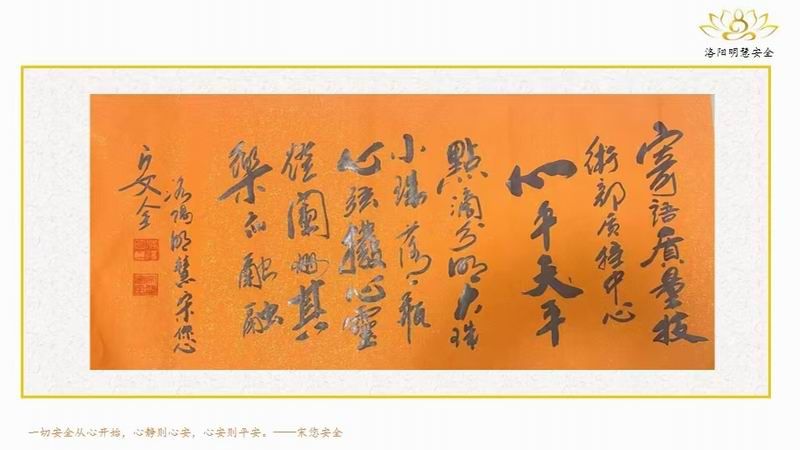 洛阳明慧安全
寄語质量技
術部质控中心
心平天平
點滴分明大珠
小珠落瓶
心弦撥心靈
燈闌珊其
樂融融
洛陽明慧宋您心
安全
一切安全从心开始，心静则心安，心安则平安。——宋您安全